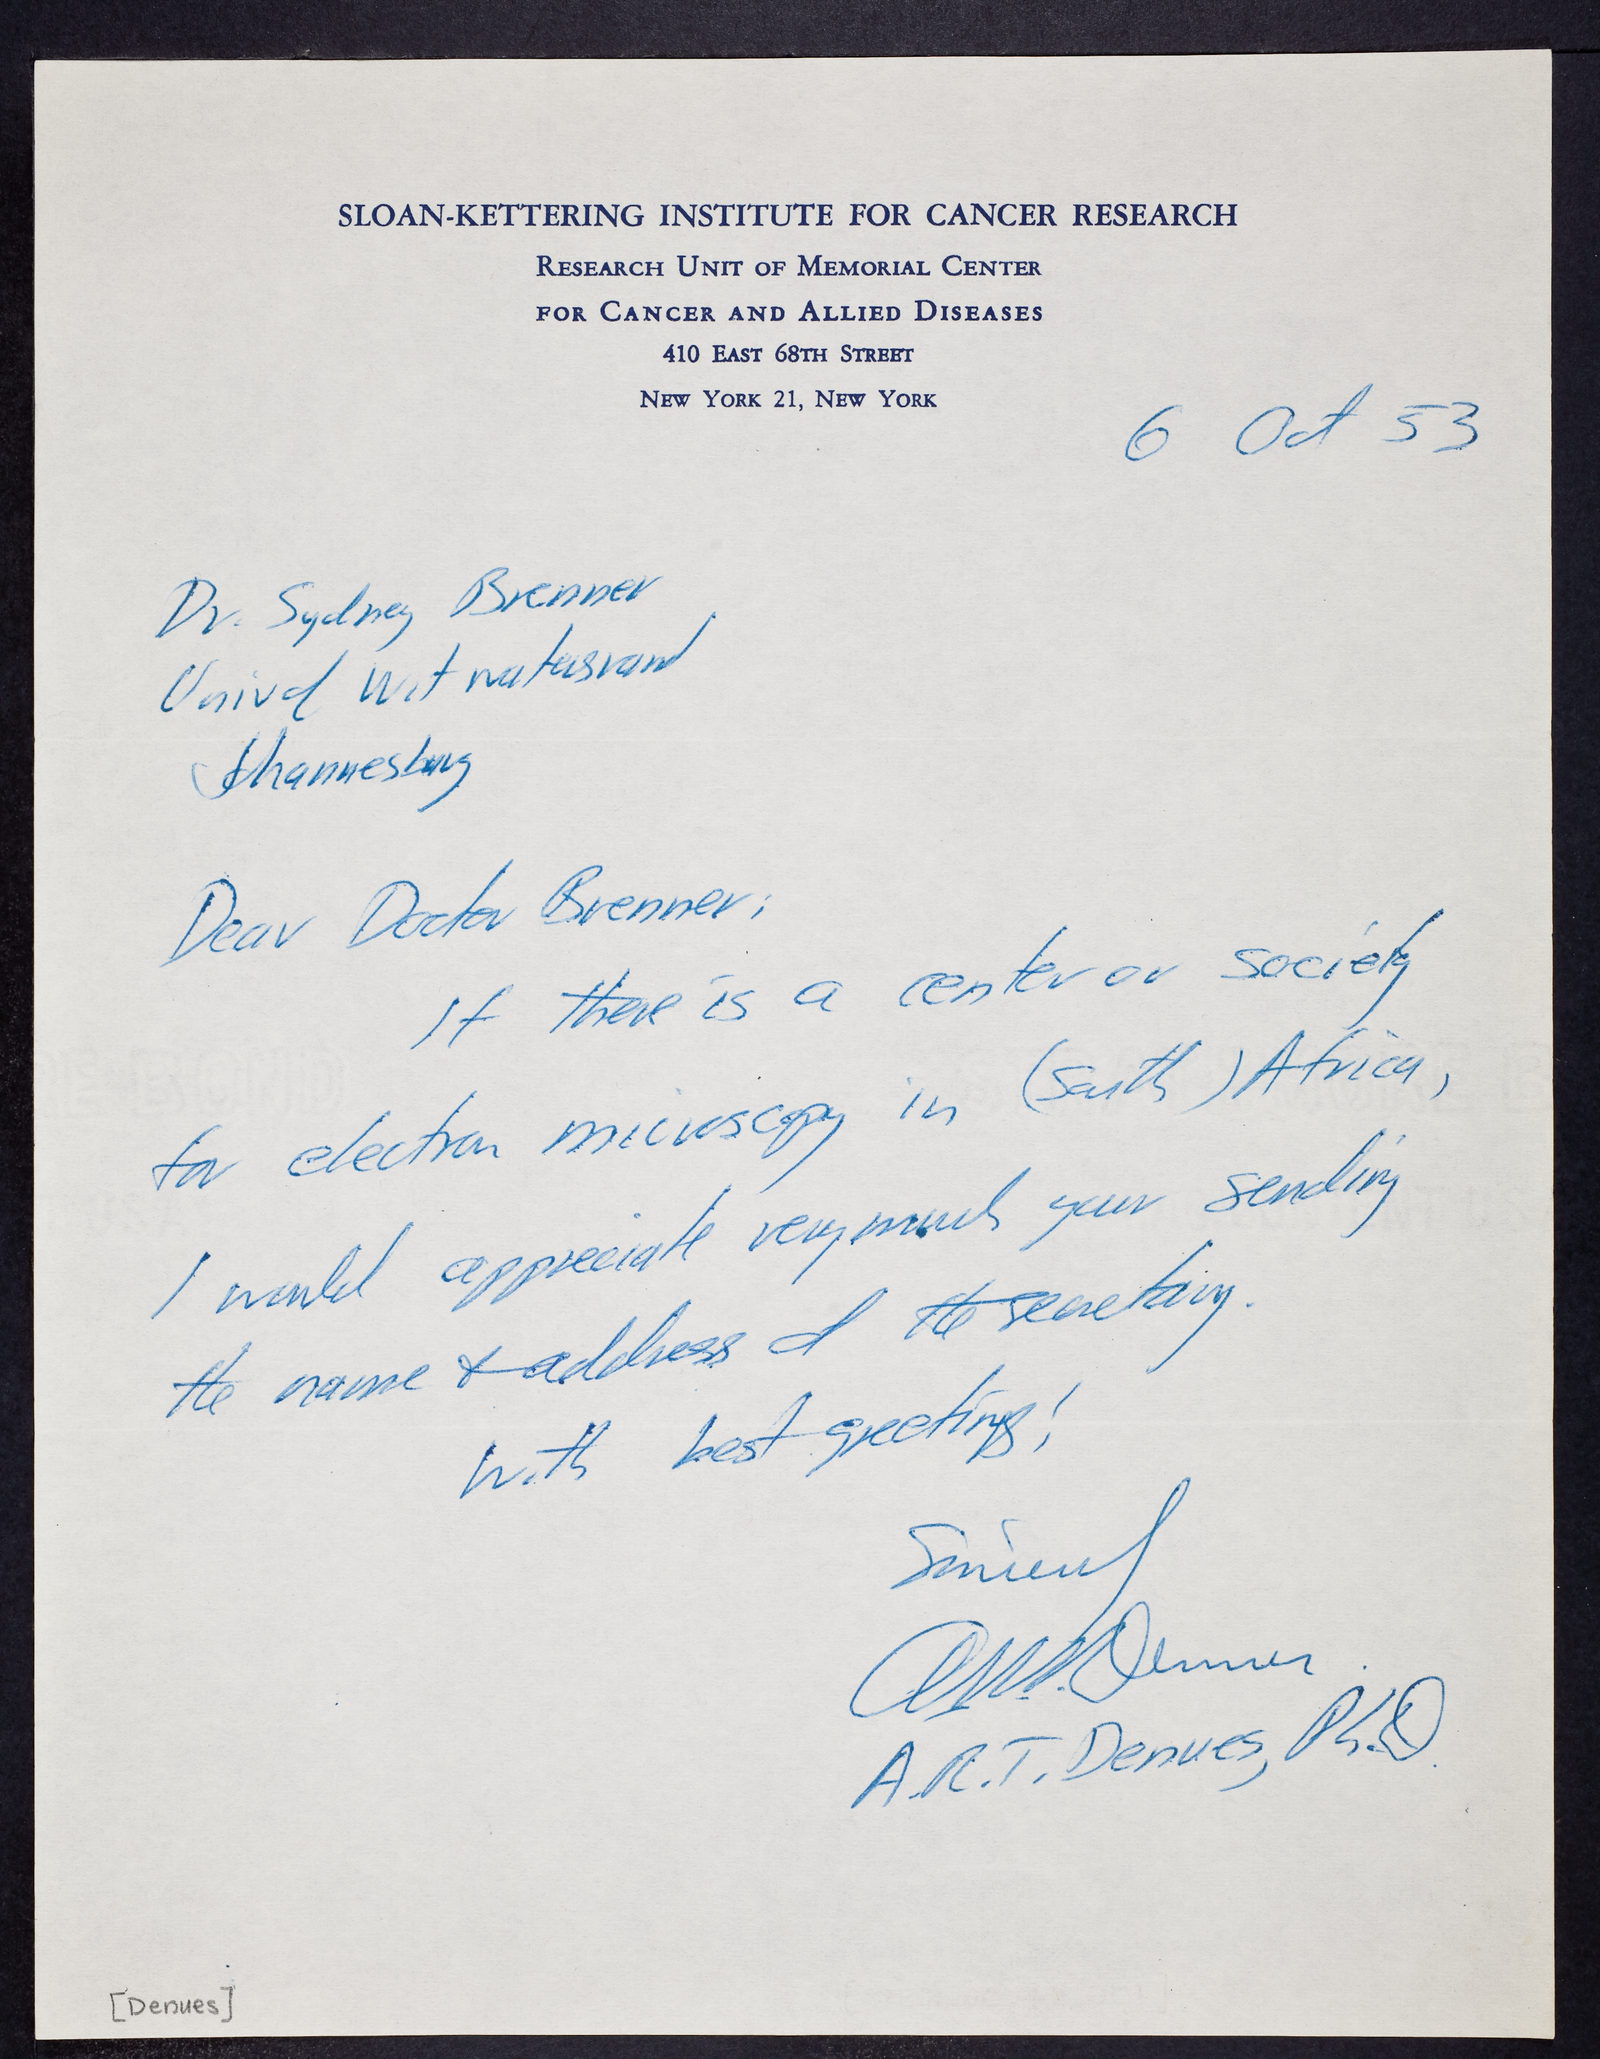 SLOAN-KETTERING INSTITUTE FOR CANCER RESEARCH
RESEARCH UNIT OF MEMORIAL CENTER
FOR CANCER AND ALLIED DISEASES
410 EAST 68TH STREET
NEW YORK 21, NEW YORK
6 Oct 53
Dr. Sydney Brenner
Univ of Witwatersrand
Johannesburg
Dear Doctor Brenner;
If there is a center or society
for electron microscopy in (South) Africa,
I would appreciate very much your sending
the name & address of the secretary.
With best greetings!
Sincerely
A.R.T. Denues
A.R.T. Denues, Ph.D.
[Denues]